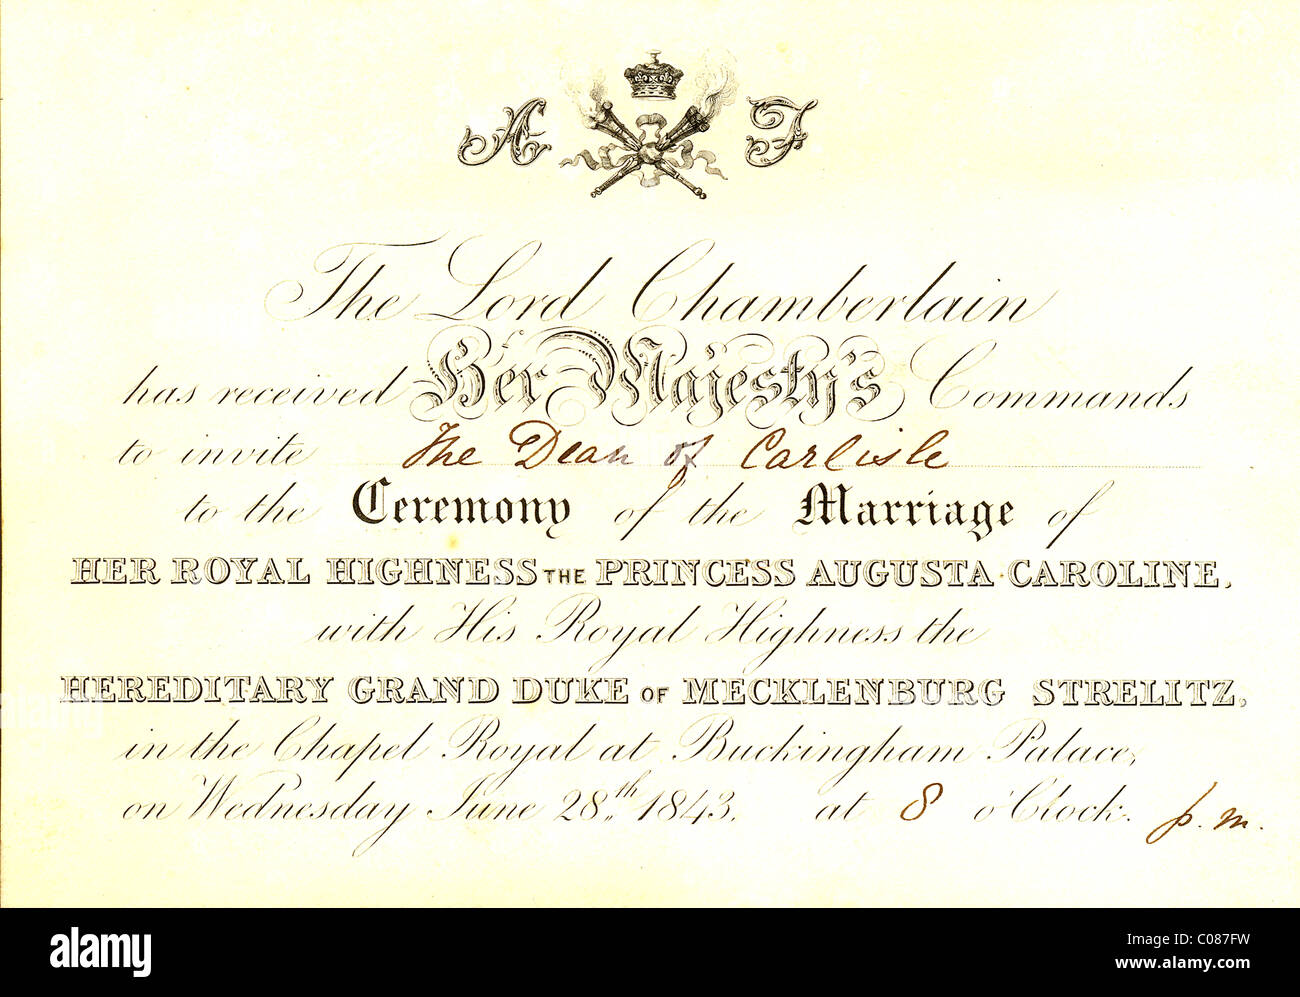 A F
The Lord Chamberlain
has received Her Majesty's Commands
to invite The Dean of Carlisle
to the Ceremony of the Marriage of
HER ROYAL HIGHNESS THE PRINCESS AUGUSTA CAROLINE,
with His Royal Highness the
HEREDITARY GRAND DUKE OF MECKLENBURG STRELITZ,
in the Chapel Royal at Buckingham Palace,
on Wednesday June 28th 1843, at 8 o'Clock. p.m.
alamy
Image ID: C087FW
www.alamy.com